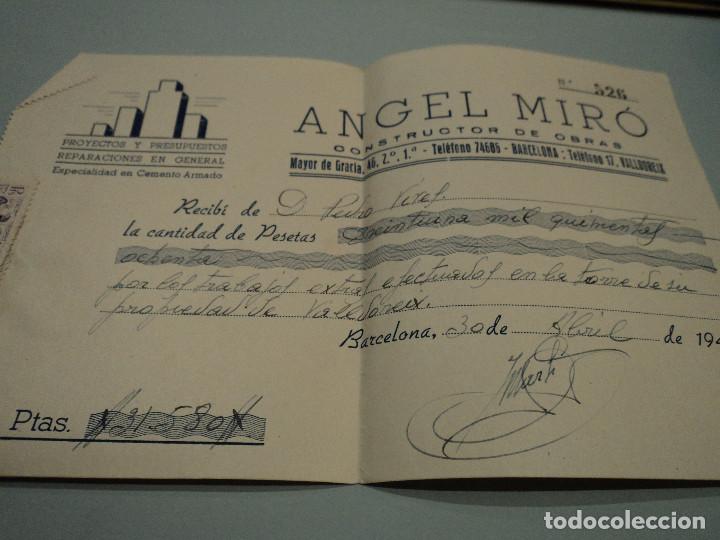 Nº 526
ANGEL MIRÓ
CONSTRUCTOR DE OBRAS
Mayor de Gracia, 46, 2.º, 1.ª - Teléfono 74605 - BARCELONA : Teléfono 17, VALLDOREIX
PROYECTOS Y PRESUPUESTOS
REPARACIONES EN GENERAL
Especialidad en Cemento Armado
Recibí de D. Pedro Vives
la cantidad de Pesetas mil quinientas
ochenta
por los trabajos extras efectuados en la torre de su
propiedad de Valldoreix.
Barcelona, 30 de Abril de 194
Ptas. 31580
todocoleccion